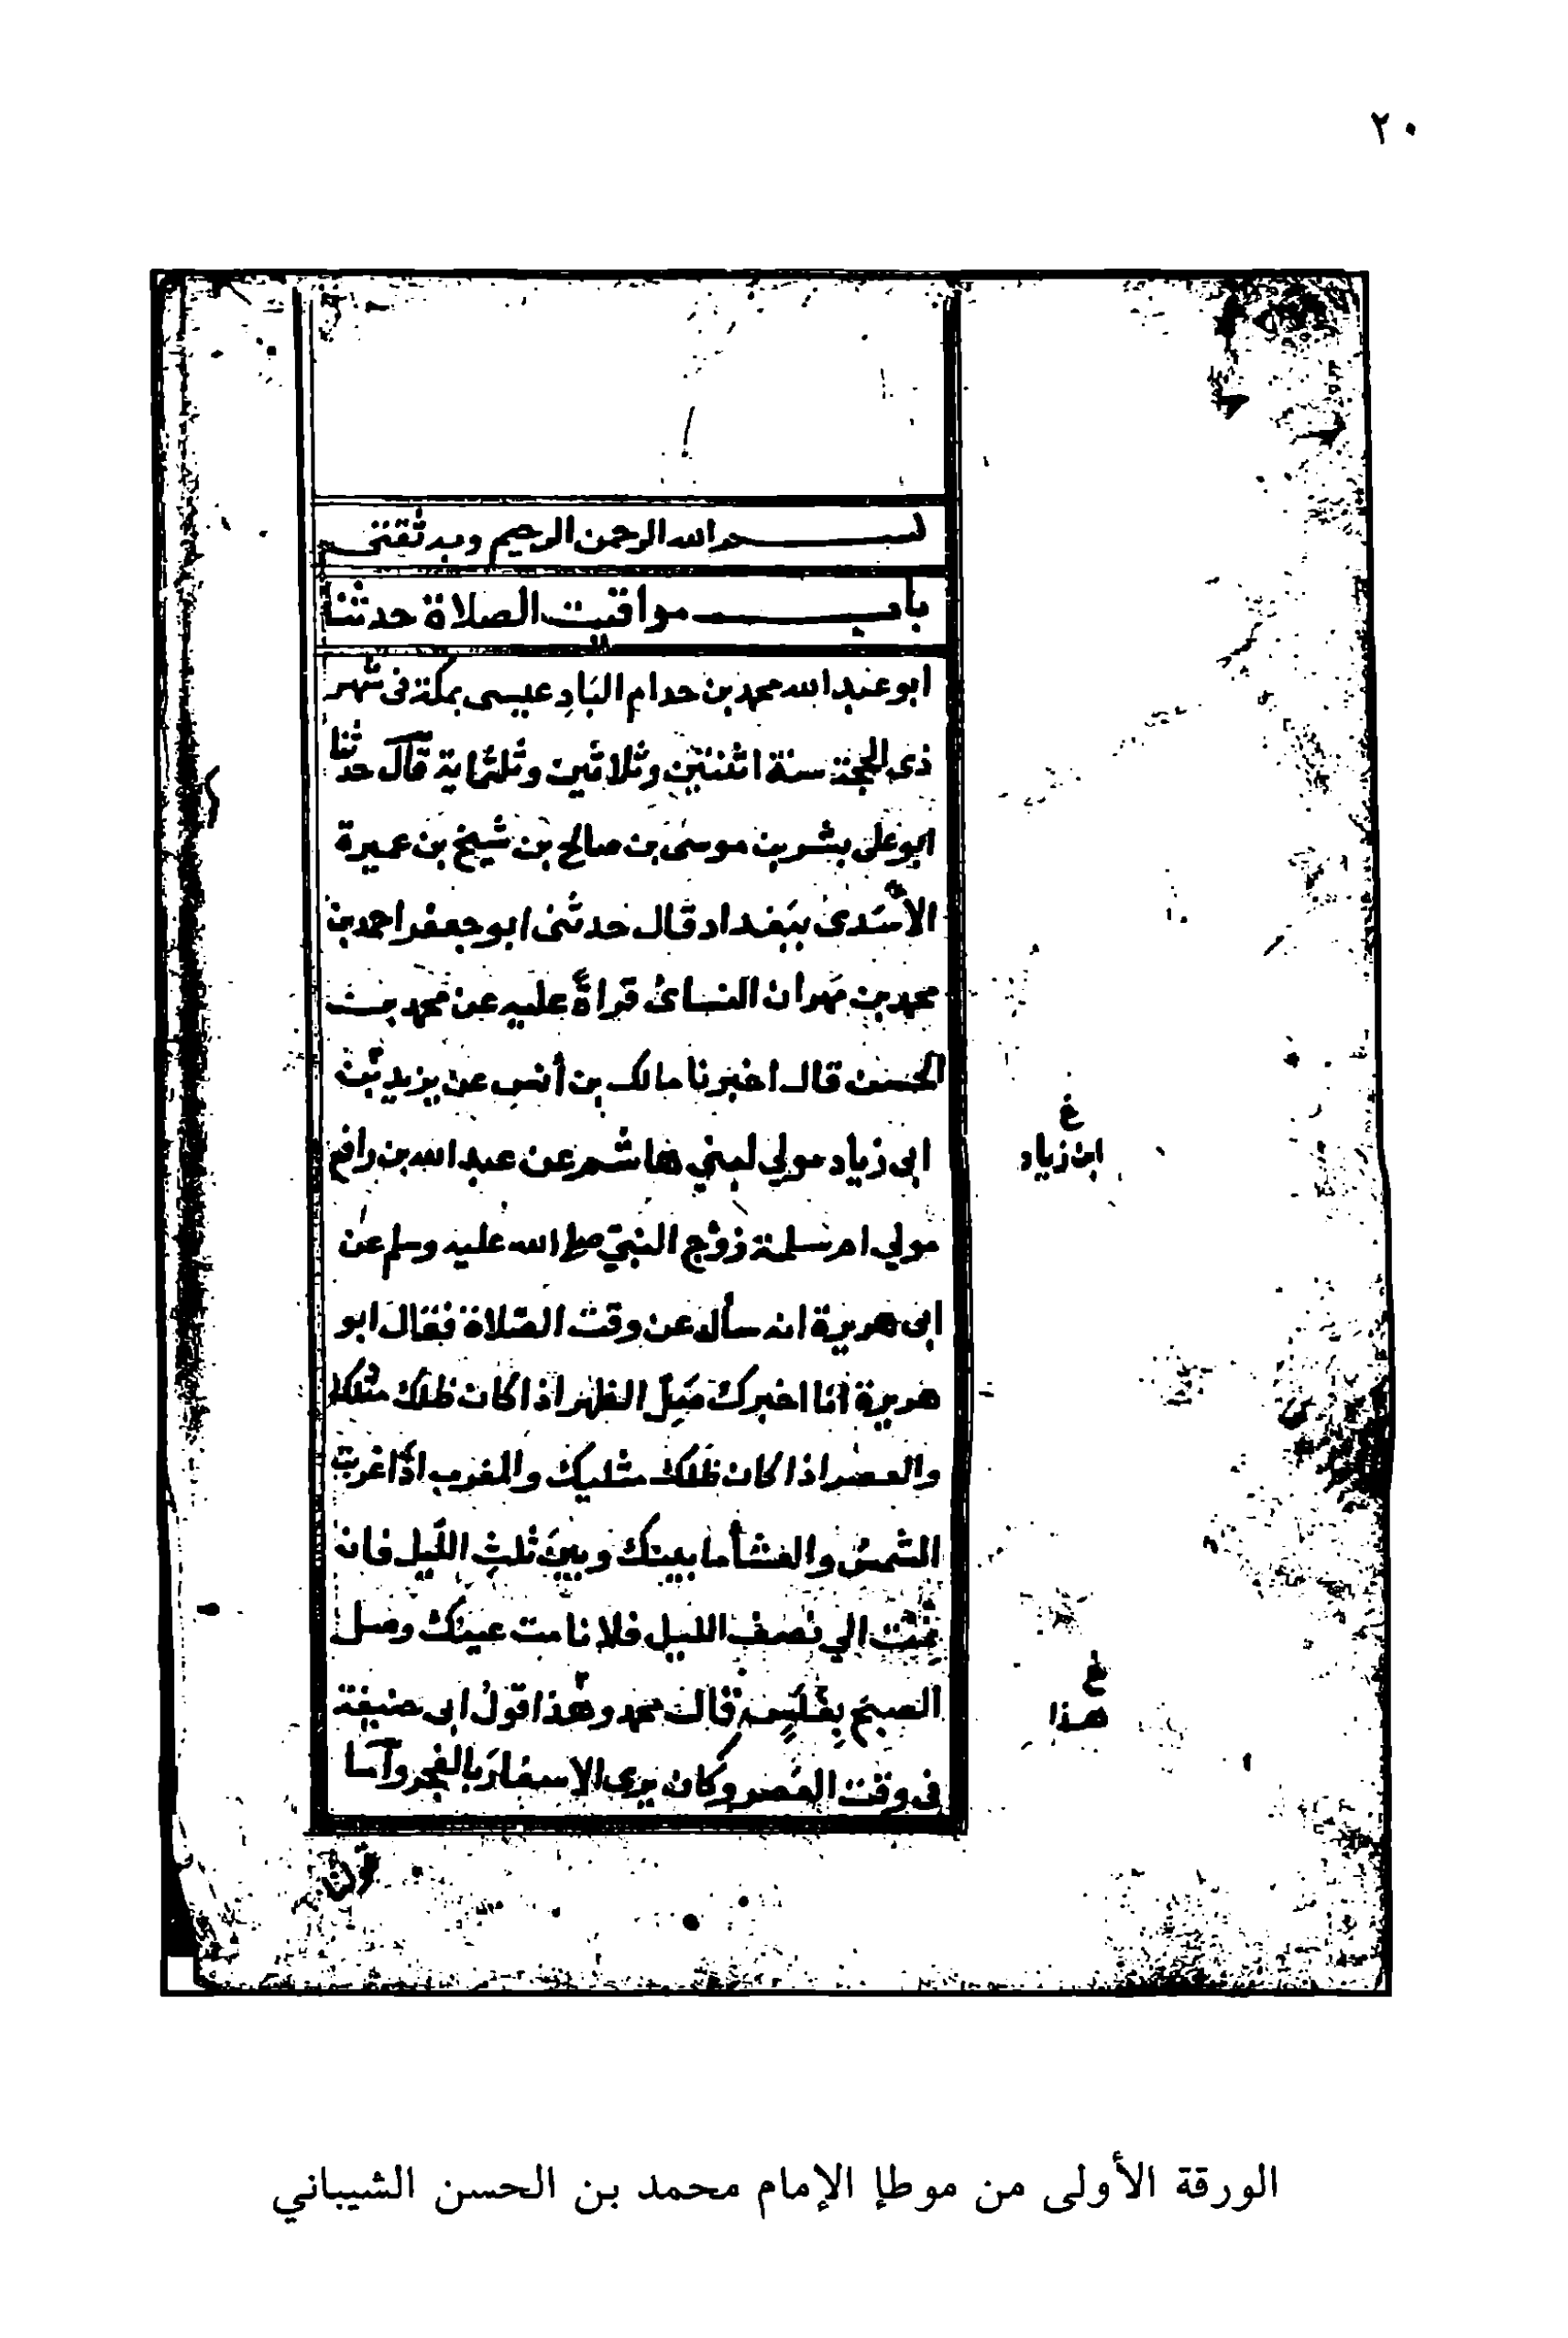 ٢٠
بسم الله الرحمن الرحيم وبه ثقتي
باب مواقيت الصلاة حدثنا
ابو عبد الله محمد بن حدام عيسى بمكة فى شهر
ذى الحجة سنة اثنتين وثلاثين وثلثماية قال حدثنا
ابو على بشر بن موسى بن صالح بن شيخ بن عميرة
الأسَدى ببَغداد قال حدثنى ابو جعفر احمد بن
محمد بن مهران النسائ قراةً عليه عن محمد بن
الحسن قال اخبرنا مالك بن أنس عن يزيد بن
ابى زياد مولي لبني هاشم عن عبد الله بن رافع
ابن زياد
مولي ام سلمة زوْج النبيّ صلى الله عليه وسلم عن
ابى هريرة انه سأله عن وقت الصّلاة فقال ابو
هريرة انا اخبرك صَلِّ الظهر اذا كان ظلك مثلك
والعصر اذا كان ظلك مثليك والمغرب اذا غربت
الشمسُ والعشأ ما بينك وبينَ ثلثِ اللّيل فان
نمت الي نصف الليل فلا نامت عينك وصل
الصبحَ بِغَلَسٍ قال محمد وهذا قولُ ابى حنيفة
هذا
فى وقت العَصر وكان يرى الاسفارَ بالفجر وآما
الورقة الأولى من موطإ الإمام محمد بن الحسن الشيباني